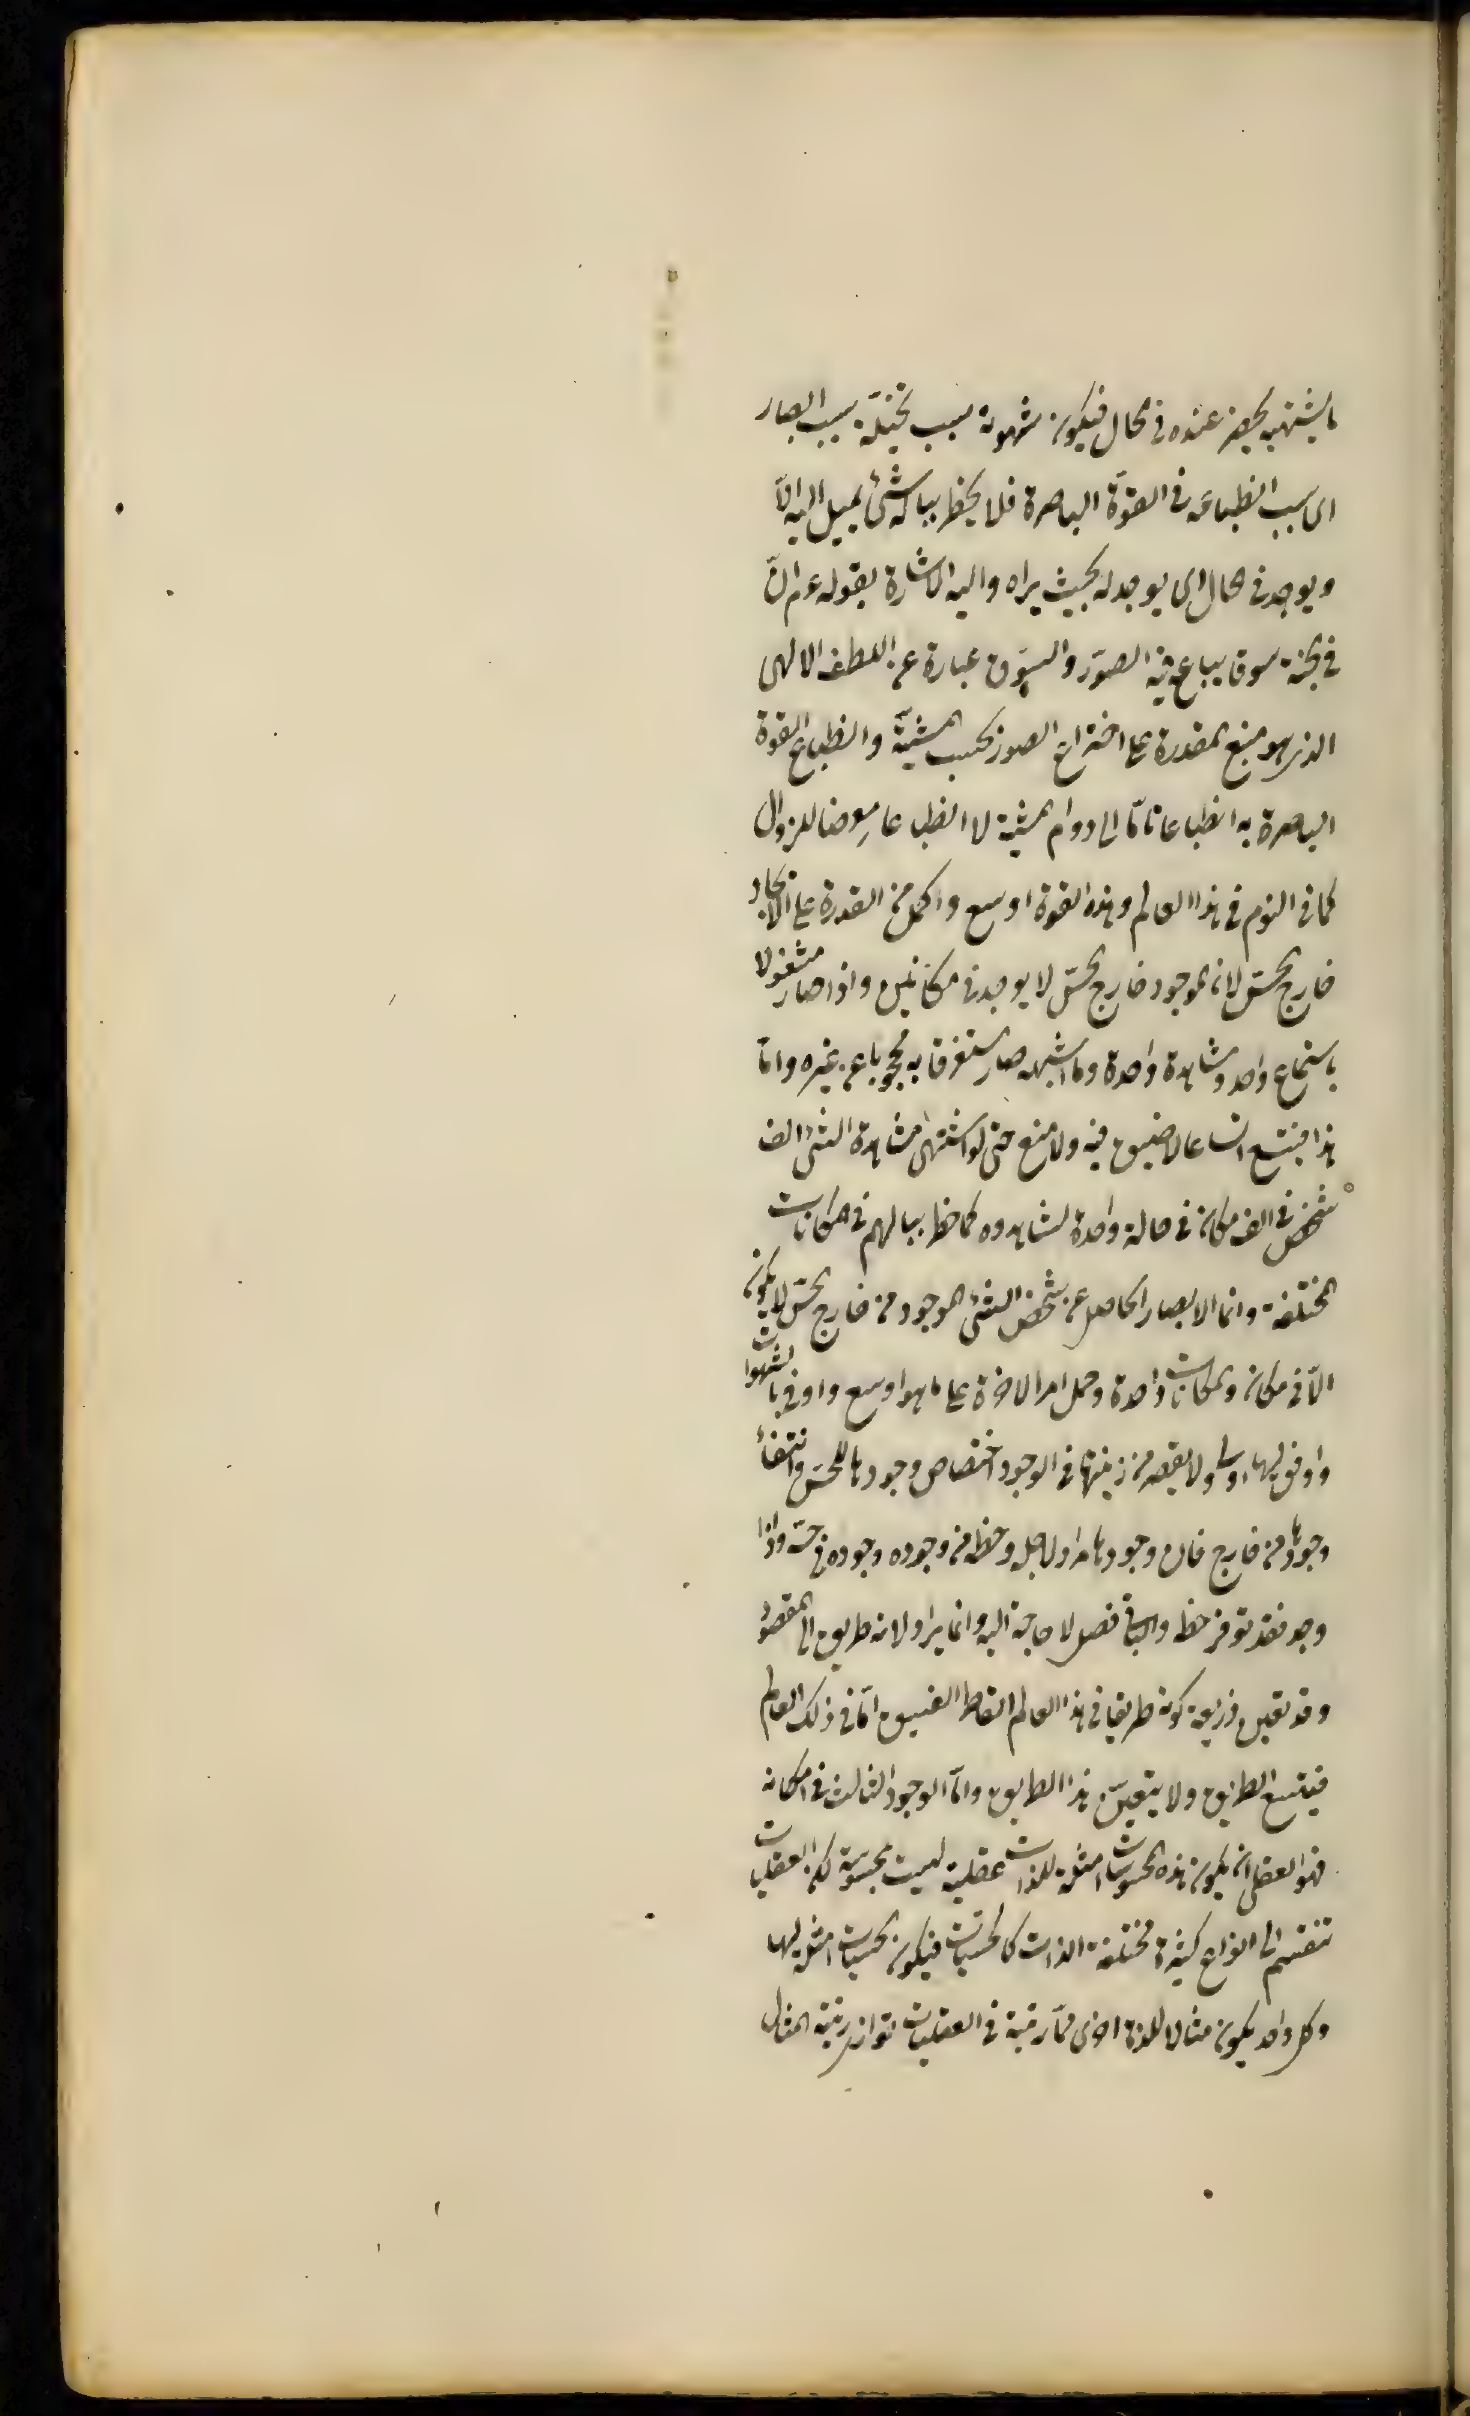 ما يشتهيه يحضر عنده في الحال فيكون شهوته بسبب تخيله بسبب ابصار
اى بسبب انطباعه في القوّة الباصرة فلا يخطر بباله شئ يميل اليه الاّ
ويوجد في الحال اى يوجد له بحيث يراه واليه الاشارة بقوله عم انّ
في الجنة سوقا يباع فيه الصوَر والسوق عبارة عن اللطف الالهى
الذى هو منبع القدرة على اختراع الصور بحسب المشيّة وانطباع القوة
الباصرة به انطباعا ثابتا الى دوام المشية لا انطباعا معرضا للزوال
كما في النوم في هذا العالم وهذه القوة اوسع واكمل من القدرة على الايجاد
خارج الحسّ لان الموجود خارج الحسّ لا يوجد في مكانين واذا صار مشغولا
باستماع واحد ومشاهدة واحدة وما اشبهه صار مستغرقا به محجوبا عن غيره وامّا
هذا فيتسع اتساعا لا ضيق فيه ولا منع حتى لو اشتهى مشاهدة الشئ الف
شخص في الف مكان في حالة واحدة لشاهدوه كما خطر ببالهم في المكانات
المختلفة وانما الابصار الحاصل عن شخص الشئ الموجود من خارج الحسّ لا يكون
الاّ في مكان والمكانات واحدة وحمل امر الاخرة على ما هو اوسع واوفى بالشهوات
واوفق لها اولى ولا ينقص من رتبتها في الوجود اختصاص وجودها للحسّ وانتفاء
وجودها من خارج فان وجودها مراد لاجل حظه من وجوده وجوده في حسّه واذا
وجد فقد توفر حظه والباقى فضل لا حاجة اليه وانما يراد لانه طريق الى المقصود
وقد تعين ذريعة كونه طريقا في هذا العالم الضيق امّا في ذلك العالم
فيتسع الطريق ولا يتعيّن هذا الطريق وامّا الوجود الثالث في امكانه
فهو العقلى ان يكون هذه المحسوسات امثلة للذات عقلية ليست بمحسوسة لكن العقليات
تنقسم الى انواع كثيرة مختلفة الذات كالحسيّات فيكون الحسيات امثلة لها
وكل واحد يكون مثالا للذة اخرى ممّا رتبة في العقليات توازى رتبة المثال